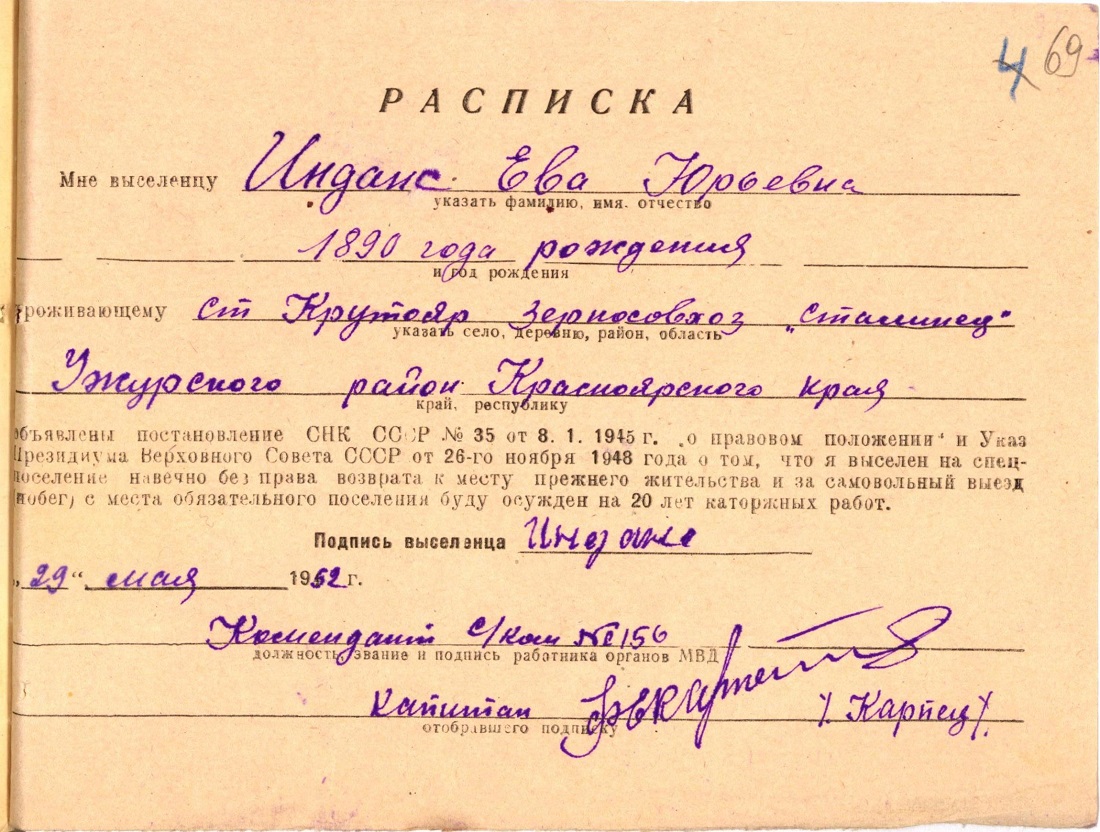 4 69
РАСПИСКА
Мне выселенцу Инданс Ева Юрьевна
указать фамилию, имя, отчество
1890 года рождения
и год рождения
проживающему ст Крутояр Зерносовхоз „Сталинец"
указать село, деревню, район, область
Ужурского район Красноярского края
край, республику
объявлены постановление СНК СССР № 35 от 8. 1. 1945 г. „о правовом положении" и Указ
Президиума Верховного Совета СССР от 26-го ноября 1948 года о том, что я выселен на спец-
поселение навечно без права возврата к месту прежнего жительства и за самовольный выезд
(побег) с места обязательного поселения буду осужден на 20 лет каторжных работ.
Подпись выселенца Инданс
„29" мая 1952 г.
Комендант с/ком № 156
должность, звание и подпись работника органов МВД
капитан /Карпец/
отобравшего подписку